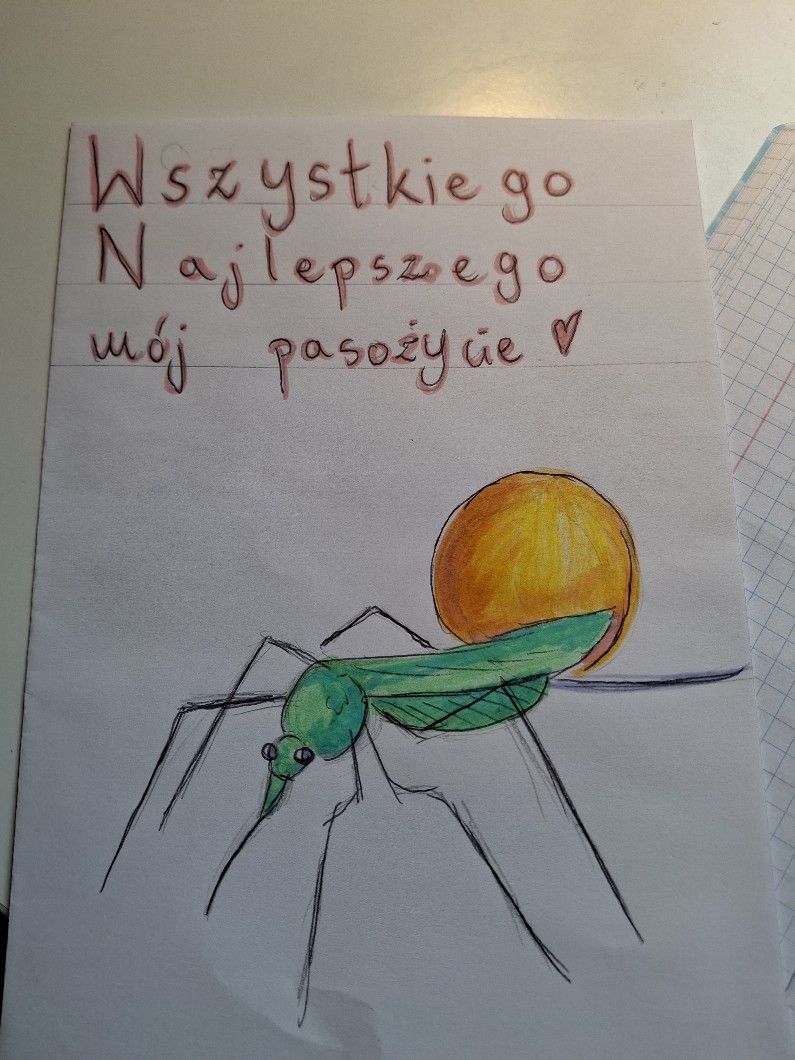 Wszystkiego
Najlepszego
mój pasożycie ♥